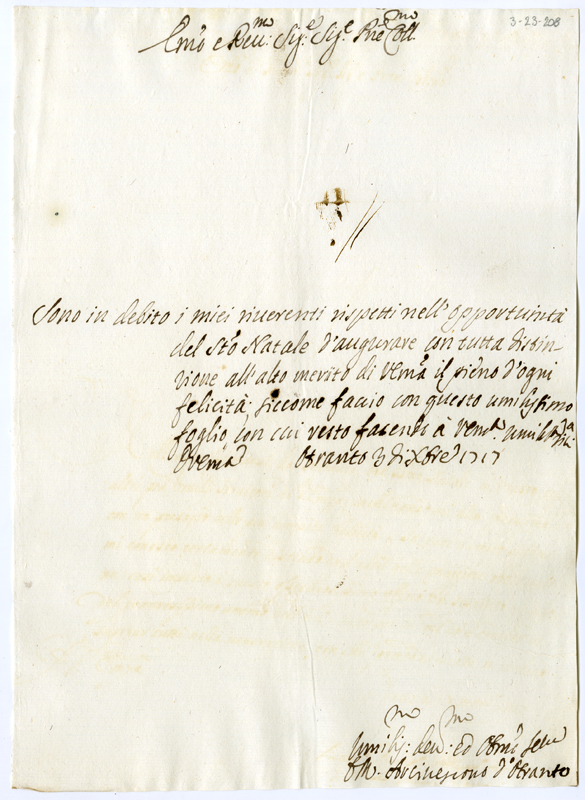 3-23-208
Emo e Revmo: Sige Sige Pne Collmo
Sono in debito i miei riverenti rispetti nell'opportunità
del Sto Natale d'augurare con tutta distin-
zione all'alto merito di Vema il pieno d'ogni
felicità, siccome faccio con questo umilissimo
foglio, con cui resto facendo à Vema. umilissma
D Vema Otranto Xbre 1717
Umilissmo: Devmo: ed Obmo Sere
Arcivescovo d'Otranto